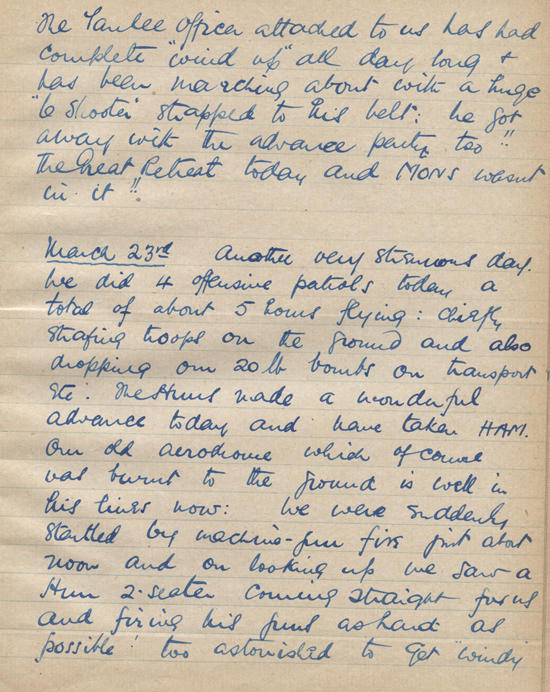 The Yankee Officer attached to us has had
complete "wind up" all day long &
has been marching about with a huge
"6 Shooter" strapped to his belt: he got
away with the advance party too!!
The Great Retreat today and MONS wasn't
in it!!
March 23rd Another very strenuous day.
We did 4 offensive patrols today a
total of about 5 hours flying: chiefly
strafing troops on the ground and also
dropping our 20 lb bombs on transport
etc. The Huns made a wonderful
advance today and have taken HAM.
Our old aerodrome which of course
was burnt to the ground is well in
his lines now: We were suddenly
startled by machine-gun fire just about
noon and on looking up we saw a
Hun 2-seater coming straight for us
and firing his guns as hard as
possible! too astonished to get "windy"